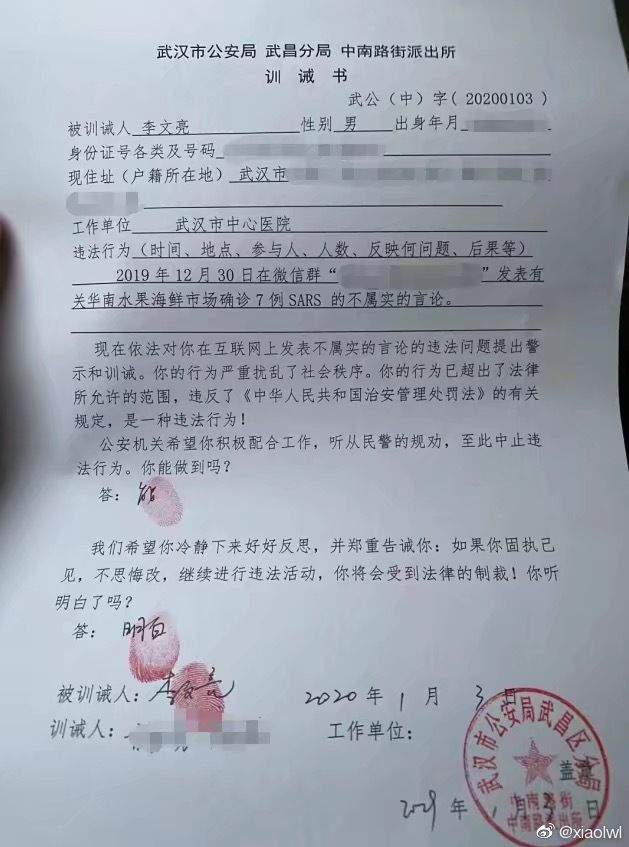 武汉市公安局 武昌分局 中南路街派出所
训 诫 书
武公（中）字（20200103）
被训诫人 李文亮 性别 男 出身年月
身份证号各类及号码
现住址（户籍所在地） 武汉市
工作单位 武汉市中心医院
违法行为（时间、地点、参与人、人数、反映何问题、后果等）
2019 年 12 月 30 日在微信群“ ”发表有
关华南水果海鲜市场确诊 7 例 SARS 的不属实的言论。
现在依法对你在互联网上发表不属实的言论的违法问题提出警
示和训诫。你的行为严重扰乱了社会秩序。你的行为已超出了法律
所允许的范围，违反了《中华人民共和国治安管理处罚法》的有关
规定，是一种违法行为！
公安机关希望你积极配合工作，听从民警的规劝，至此中止违
法行为。你能做到吗？
答：能
我们希望你冷静下来好好反思，并郑重告诫你：如果你固执己
见，不思悔改，继续进行违法活动，你将会受到法律的制裁！你听
明白了吗？
答：明白
被训诫人：李文亮 2020 年 1 月 3 日
训诫人： 工作单位：
武汉市公安局武昌区分局
中南路街
中南路派出所
盖章
年 1 月 3 日
@xiaolwl